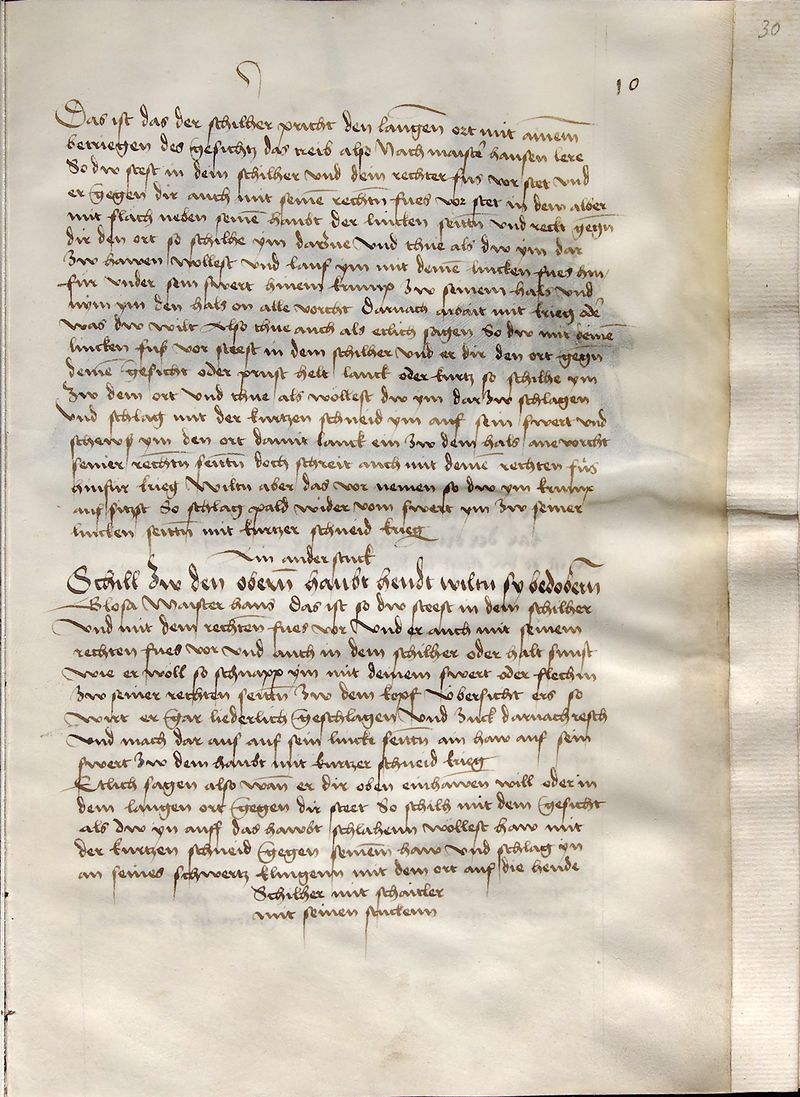 30
10
Das ist das der schilher pricht den langen ort mit ainem
betriegen des gesichtz das treib also Nach maister hansen lere
So dw stest in dem schilher vnd dem rechter fus vor stet vnd
er gegen dir auch mit seinē rechtn̄ fues vor stet in dem alber
mit flach neben seinē haubt der lincken seittn̄ vnd reckt gegn̄
dir den ort so schilhe ym darzue vnd thue als dw ym dar
Zw hawen wollest vnd lauf ym mit deinē lincken fues hin
fur vnder sein swert hinein krump zw seinem hals vnd
nym ym den hals on alle vorcht darnach arbait mit krieg oder
was dw wilt Also thue auch als etlich sagen So dw mit deinē
lincken fus vor steest in dem schilher vnd er dir den ort gegn̄
deinē gesicht oder prust helt lanck oder kurtz so schilhe ym
Zw dem ort vnd thue als wollest dw ym dar Zw schlagen
vnd schlag mit der kurtzen schneid ym auf sein swert vnd
schews ym den ort damit lanck ein Zw dem hals ane vorcht
seiner rechtn̄ seittn̄ doch schreit auch mit deinē rechten fus
hinfur krieg Wiltu aber das vor nemen so dw ym krump
auf sitzst So schlag pald wider vom swert ym Zw seiner
lincken seittn̄ mit kurtzer schneid krieg
Ain ander stuck
Schill Zw den obern̄ haubt hendt wiltu sy bedobern̄
Glosa Maister hans Das ist so dw steest in dem schilher
vnd mit dem rechten fues vor vnd er auch mit seinem
rechten fues vor vnd auch in dem schilher oder halt sunst
wie er woll so schnapp ym mit deinem swert oder flechin
Zw seiner rechten seittn̄ Zw dem kopf vbersicht ers so
wirt er gar liederlich geschlagen vnd Zuck darnach resch
vnd mach dar aus auf sein lincke seittn̄ ain haw auf sein
swert Zw dem haubt mit kurtzer schneid krieg
Etlich sagen also wan̄ er dir oben einhawen will oder in
dem langen ort gegen dir steet So schilh mit dem gesicht
als dw yn auff das hawbt schlahenn wollest haw mit
der kurtzen schneid gegen seinem haw vnd schlag yn
an seines schwertz klingenn mit dem ort auf die hende
Schilher mit schaitler
mit seinen stuckenn